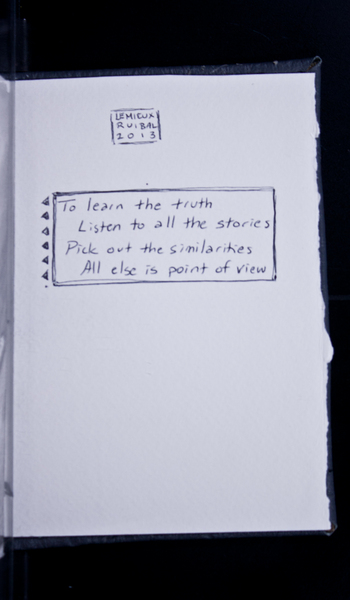 LEMIEUX
RUIBAL
2013
To learn the truth
Listen to all the stories
Pick out the similarities
All else is point of view